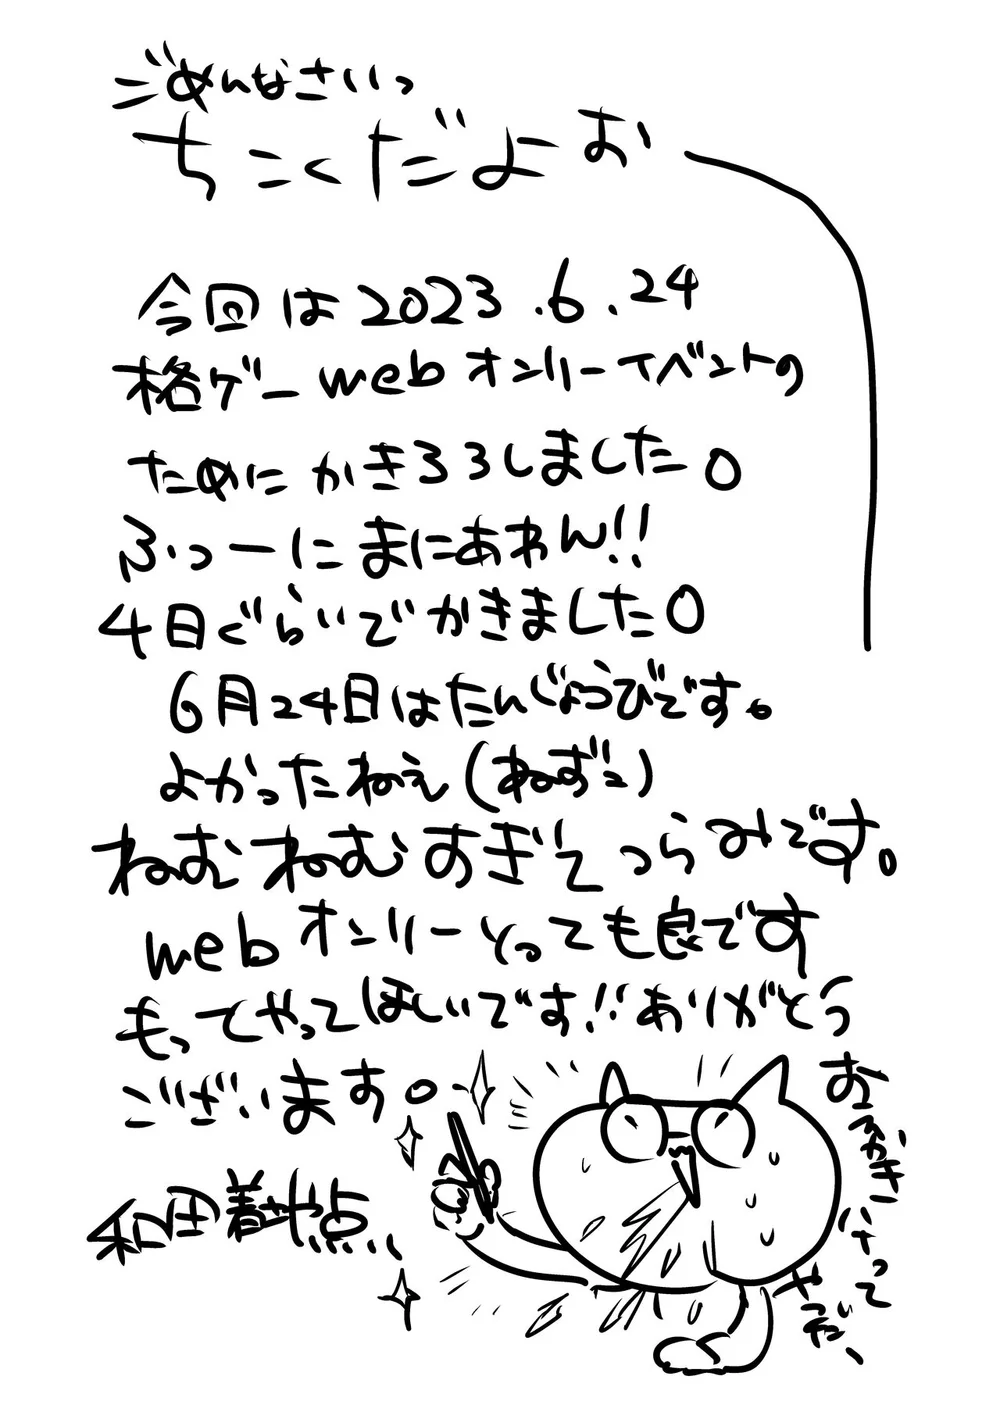 ごめんなさいっ
ちこくだよお
今回は2023.6.24
格ゲーwebオンリーイベントの
ためにかきろろしました。
ふっーにまにあわん!!
4日ぐらいでかきました。
6月24日はたんじょうびです。
よかったねえ(ねずこ)
ねむねむすぎてつらみです。
webオンリーとっても良です
もってやってほしいです!!ありがとう
ございます。
和田着
点
おえかき
って
やだ、